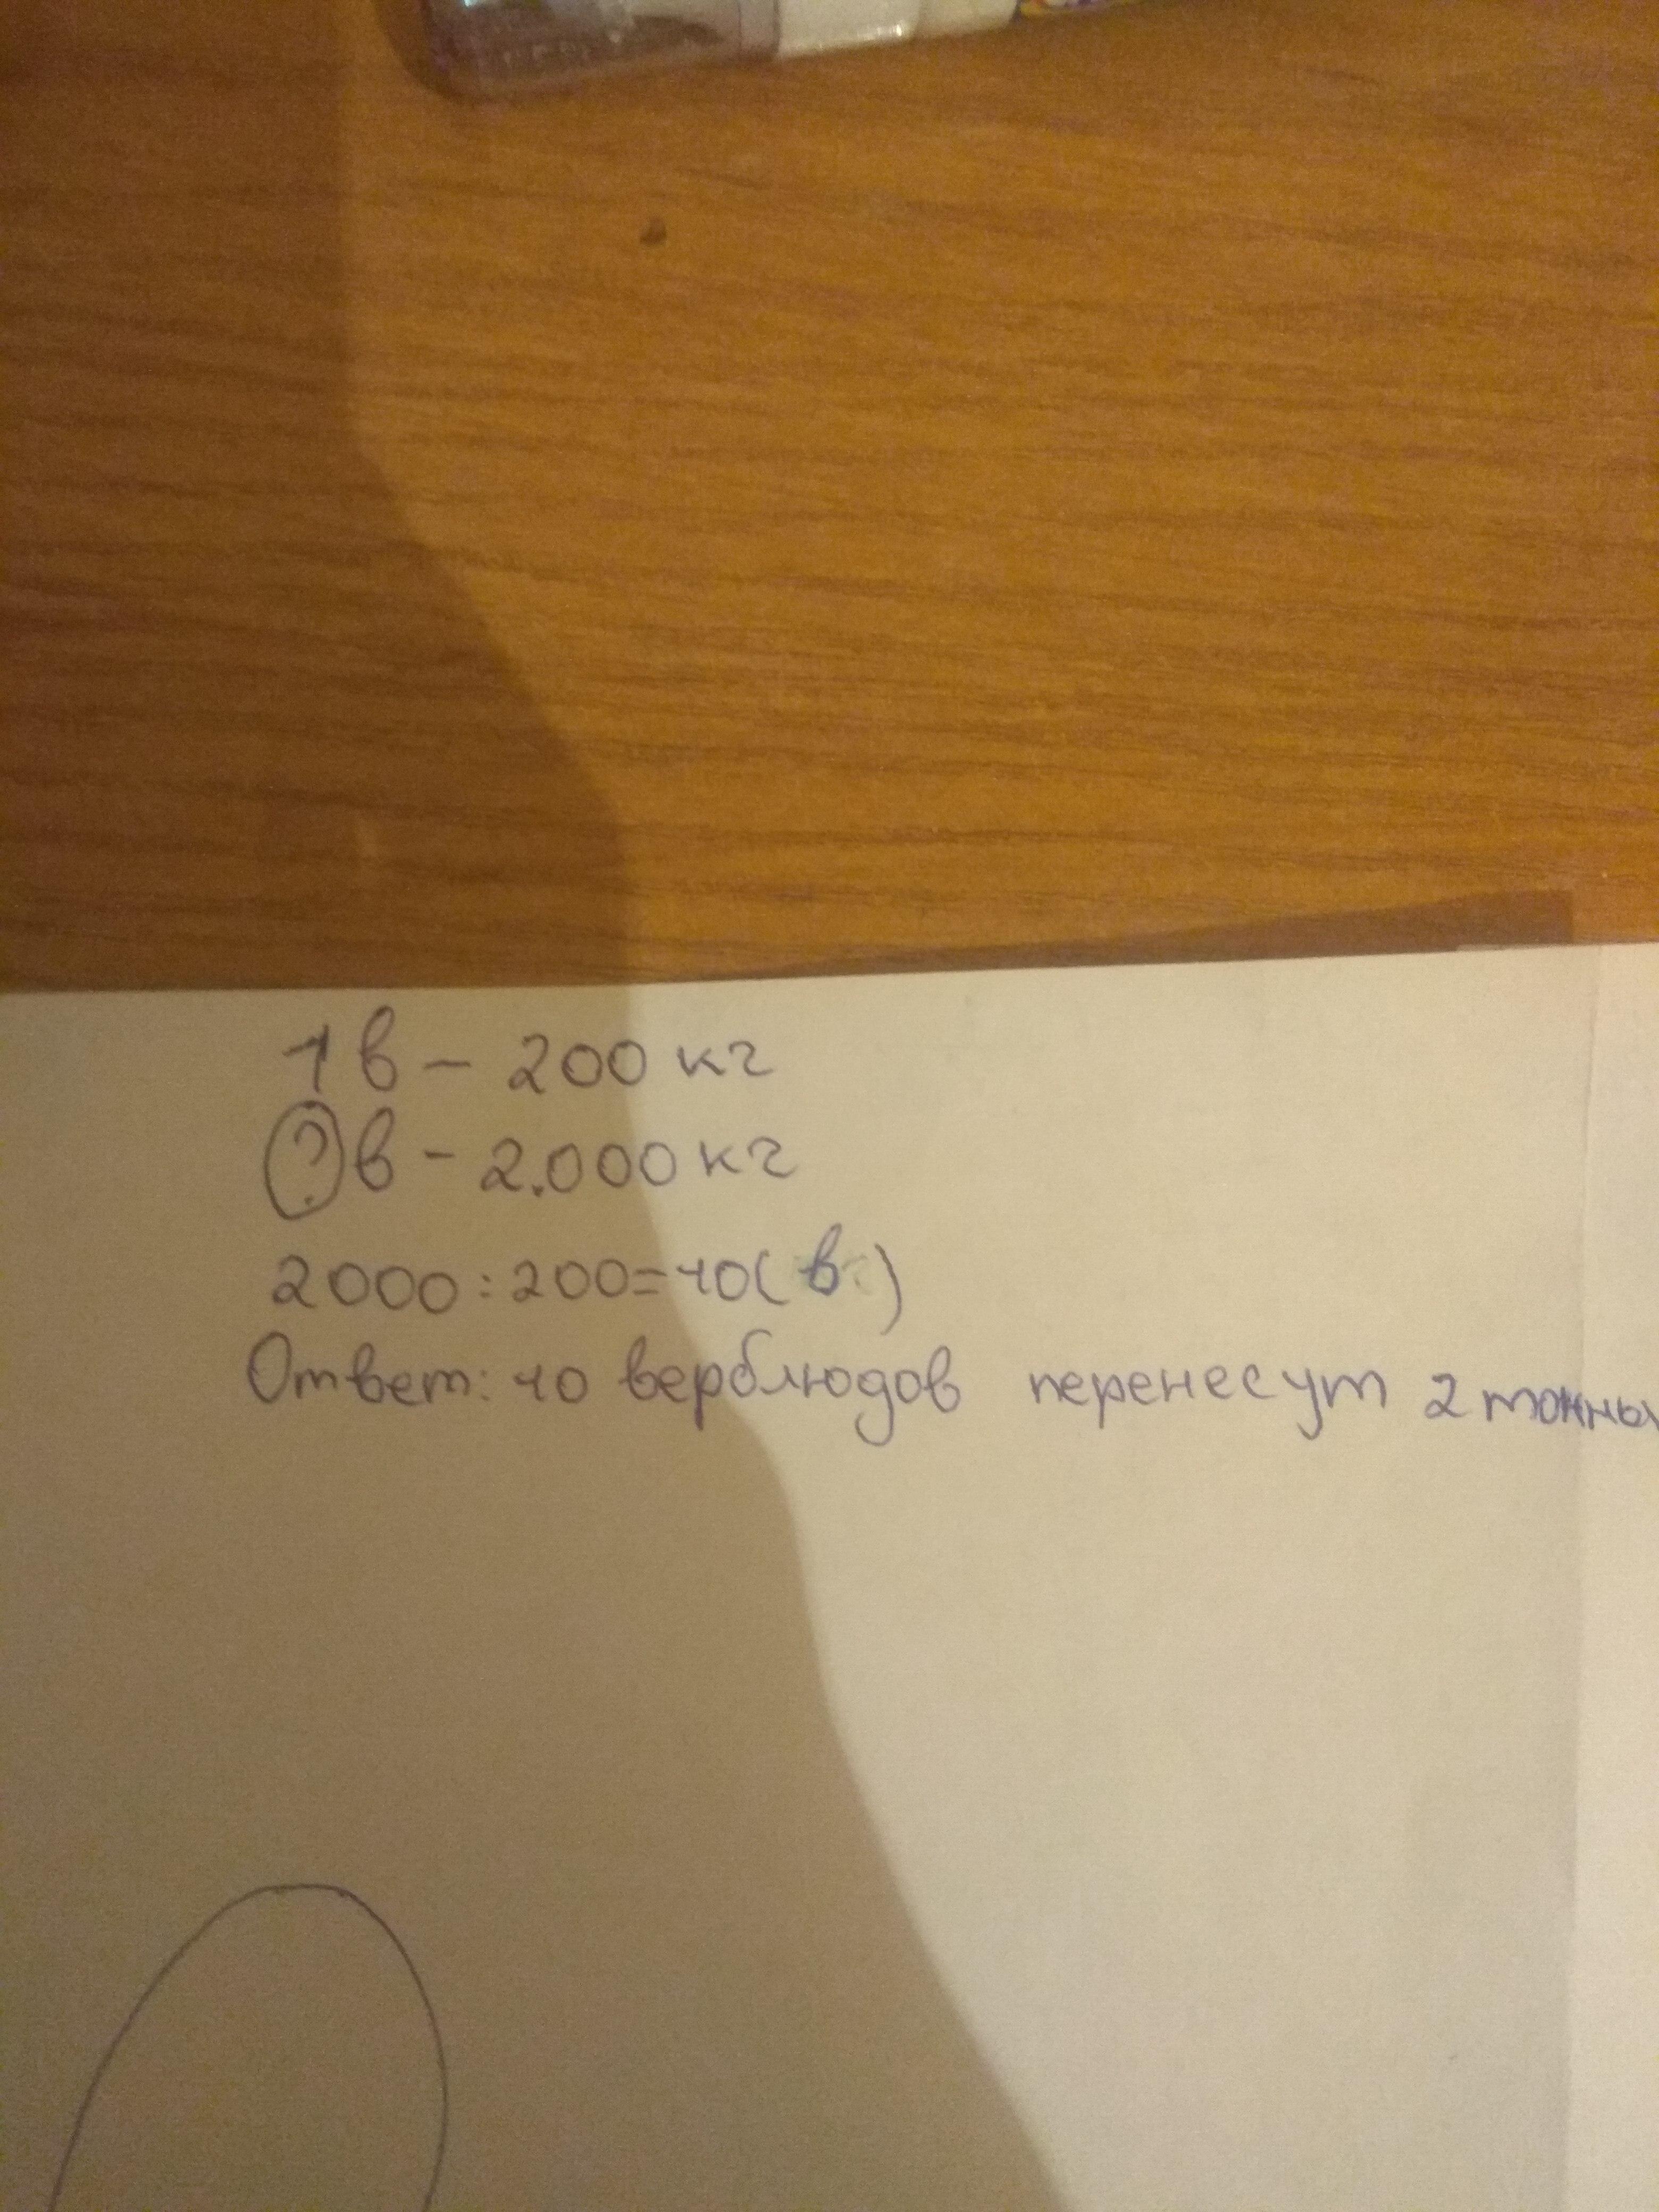 1 в – 200 кг
? в – 2.000 кг
2000 : 200 = 10 ( в )
Ответ: 10 верблюдов перенесут 2 тонны